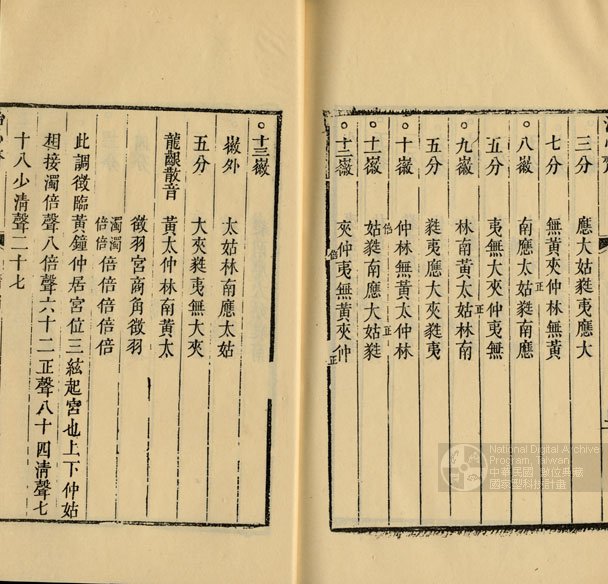 三分 應大姑蕤夷應大
七分 無黃夾仲林無黃
正
八徽 南應太姑蕤南應
五分 夷無大夾仲夷無
正
九徽 林南黃太姑林南
五分 蕤夷應大夾蕤夷
十徽 仲林無黃太仲林
倍 正
十一徽 姑蕤南應大姑蕤
十二徽 夾仲夷無黃夾仲
倍 正
十三徽
徽外 太姑林南應太姑
五分 大夾蕤夷無大夾
龍齦散音 黃太仲林南黃太
徵羽宮商角徵羽
濁濁倍倍倍倍倍
倍倍
此調徵臨黃鐘仲居宮位三絃起宮也上下仲姑
相接濁倍聲八倍聲六十二正聲八十四清聲七
十八少清聲二十七
National Digital Archive
Program, Taiwan
中華民國 數位典藏
國家型科技計畫